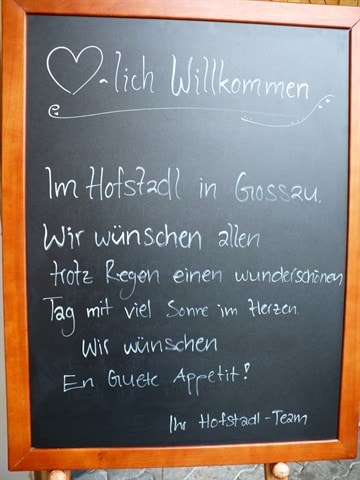 ♡-lich Willkommen
Im Hofstadl in Gossau.
Wir wünschen allen
trotz Regen einen wunderschönen
Tag mit viel Sonne im Herzen.
Wir wünschen
En Guete Appetit!
Ihr Hofstadl-Team